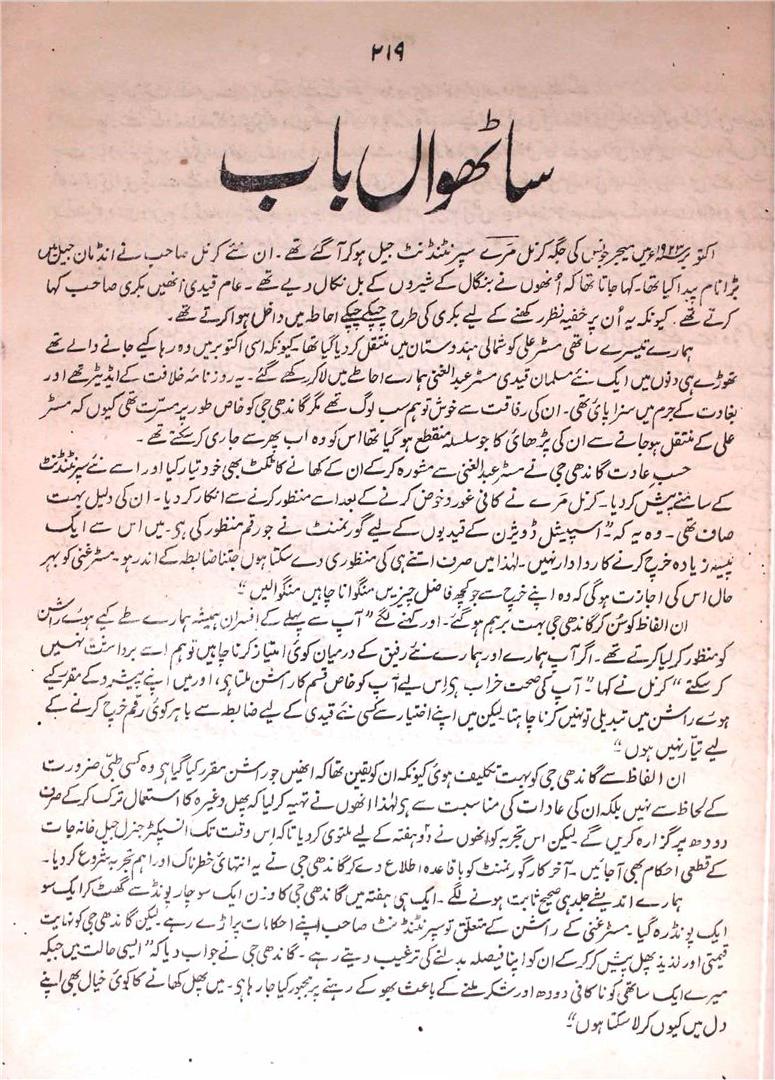 ۲۱۹
ساٹھواں باب
اکتوبر ۱۹۲۳ء میں میجر جونس کی جگہ کرنل مَرے سپرنٹنڈنٹ جیل ہوکر آگئے تھے۔ ان نئے کرنل صاحب نے انڈمان جیل میں
بڑا نام پیدا کیا تھا۔ کہا جاتا تھا کہ اُنھوں نے بنگال کے شیروں کے بل نکال دیے تھے۔ عام قیدی اُنھیں بکری صاحب کہا
کرتے تھے۔ کیونکہ یہ اُن پر خفیہ نظر رکھنے کے لیے بکری کی طرح چپکے چپکے احاطہ میں داخل ہوا کرتے تھے۔
ہمارے تیسرے ساتھی مسٹر علی کو شمالی ہندوستان میں منتقل کر دیا گیا تھا۔ کیونکہ اسی اکتوبر میں وہ رہا کیے جانے والے تھے
تھوڑے ہی دنوں میں ایک نئے مسلمان قیدی مسٹر عبدالغنی ہمارے احاطے میں لاکر رکھے گئے۔ یہ روزنامہ خلافت کے ایڈیٹر تھے اور
بغاوت کے جرم میں سزا پائی تھی۔ ان کی رفاقت سے خوش تو ہم سب لوگ تھے مگر گاندھی جی کو خاص طور پر مسرت تھی کیوں کہ مسٹر
علی کے منتقل ہو جانے سے ان کی پڑھائی کا جو سلسلہ منقطع ہو گیا تھا اس کو وہ اب پھر سے جاری کر سکتے تھے۔
حسب عادت گاندھی جی نے مسٹر عبدالغنی سے مشورہ کر کے ان کے کھانے کا ٹکٹ بھی خود تیار کیا اور اسے نئے سپرنٹنڈنٹ
کے سامنے پیش کر دیا۔ کرنل مَرے نے کافی غور و خوض کرنے کے بعد اسے منظور کرنے سے انکار کر دیا۔ ان کی دلیل بہت
صاف تھی۔ وہ یہ کہ "اسپیشل ڈویژن کے قیدیوں کے لیے گورنمنٹ نے جو رقم منظور کی ہی۔ میں اس سے ایک
پیسہ زیادہ خرچ کرنے کا روادار نہیں۔ لہٰذا میں صرف اتنے ہی کی منظوری دے سکتا ہوں جتنا ضابطہ کے اندر ہو۔ مسٹر غنی کو بہر
حال اس کی اجازت ہوگی کہ وہ اپنے خرچ سے جو کچھ فاضل چیزیں منگوانا چاہیں منگوالیں"
ان الفاظ کو سُن کر گاندھی جی بہت برہم ہو گئے۔ اور کہنے لگے "آپ سے پہلے کے افسران ہمیشہ ہمارے طے کیے ہوئے راشن
کو منظور کر لیا کرتے تھے۔ اگر آپ ہمارے اور ہمارے نئے رفیق کے درمیان کوئی امتیاز کرنا چاہیں تو ہم اسے برداشت نہیں
کر سکتے" کرنل نے کہا "آپ کی صحت خراب ہی اِس لیے آپ کو خاص قسم کا راشن ملتا ہی، اور میں اپنے پیشرو کے مقرر کیے
ہوئے راشن میں تبدیلی تو نہیں کرنا چاہتا لیکن میں اپنے اختیار سے کسی نئے قیدی کے لیے ضابطہ سے باہر کوئی رقم خرچ کرنے کے
لیے تیار نہیں ہوں"
ان الفاظ سے گاندھی جی کو بہت تکلیف ہوئی کیونکہ ان کو یقین تھا کہ انھیں جو راشن مقرر کیا گیا ہی وہ کسی طبّی ضرورت
کے لحاظ سے نہیں بلکہ ان کی عادات کی مناسبت سے ہی لہٰذا انھوں نے تہیہ کر لیا کہ پھل وغیرہ کا استعمال ترک کر کے صرف
دودھ پر گزارہ کریں گے لیکن اس تجربہ کو انھوں نے دو ہفتہ کے لیے ملتوی کر دیا تاکہ اِس وقت تک انسپکٹر جنرل جیل خانہ جات
کے قطعی احکام بھی آجائیں۔ آخر کار گورنمنٹ کو باقاعدہ اطلاع دے کر گاندھی جی نے یہ انتہائی خطرناک اور اہم تجربہ شروع کر دیا۔
ہمارے اندیشے جلد ہی صحیح ثابت ہونے لگے۔ ایک ہی ہفتہ میں گاندھی جی کا وزن ایک سو چار پونڈ سے گھٹ کر ایک سو
ایک پونڈ رہ گیا۔ مسٹر غنی کے راشن کے متعلق تو سپرنٹنڈنٹ صاحب اپنے احکامات پر اڑے رہے لیکن گاندھی جی کو نہایت
قیمتی اور لذیذ پھل پیش کر کر کے ان کو اپنا فیصلہ بدلنے کی ترغیب دیتے رہے۔ گاندھی جی نے جواب دیا کہ "ایسی حالت میں جبکہ
میرے ایک ساتھی کو ناکافی دودھ اور شکر ملنے کے باعث بھوکے رہنے پر مجبور کیا جا رہا ہی۔ میں پھل کھانے کا کوئی خیال بھی اپنے
دل میں کیوں کر لا سکتا ہوں"